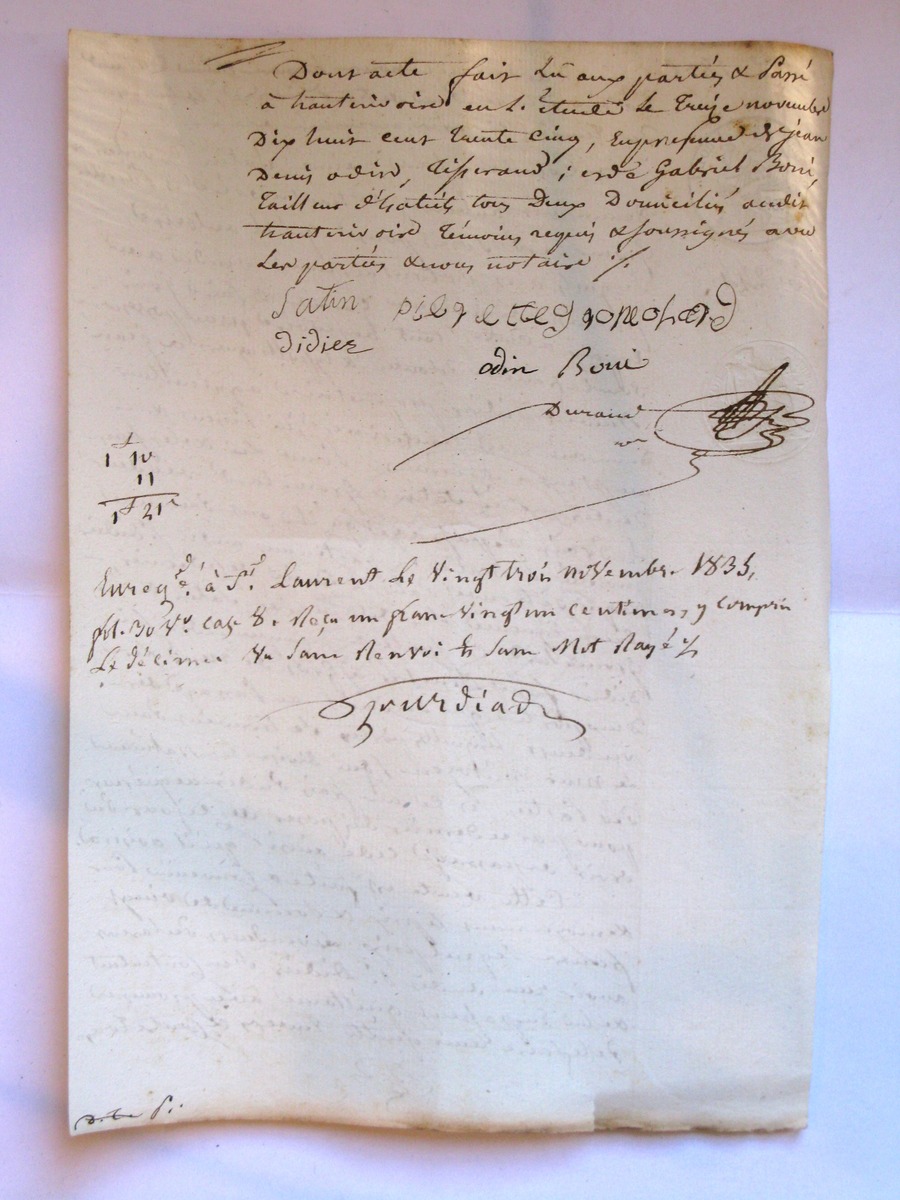 Dont acte fait Lû aux parties & Passé
à hauterivoire en L'étude Le Treize novembre
Dix huit cent Trente Cinq, En presence de jean
Denis odin, Tisserand; et de Gabriel Boni,
Tailleur d'habits tous Deux Domiciliés audit
hauterivoire Témoins requis & soussignés avec
Les parties & nous notaire ./.
Satin pierette gromohard
didier
odin Boni
Durand
nre
1f 10
11
1f 21c
Enregé. à St. Laurent Le vingt trois novembre 1835,
fol. 30 Vo. case 8. Reçu un franc vingt un centimes, y compris
Le décime Sans Renvoi & Sans Mot Rayé ./.
Jourdiad